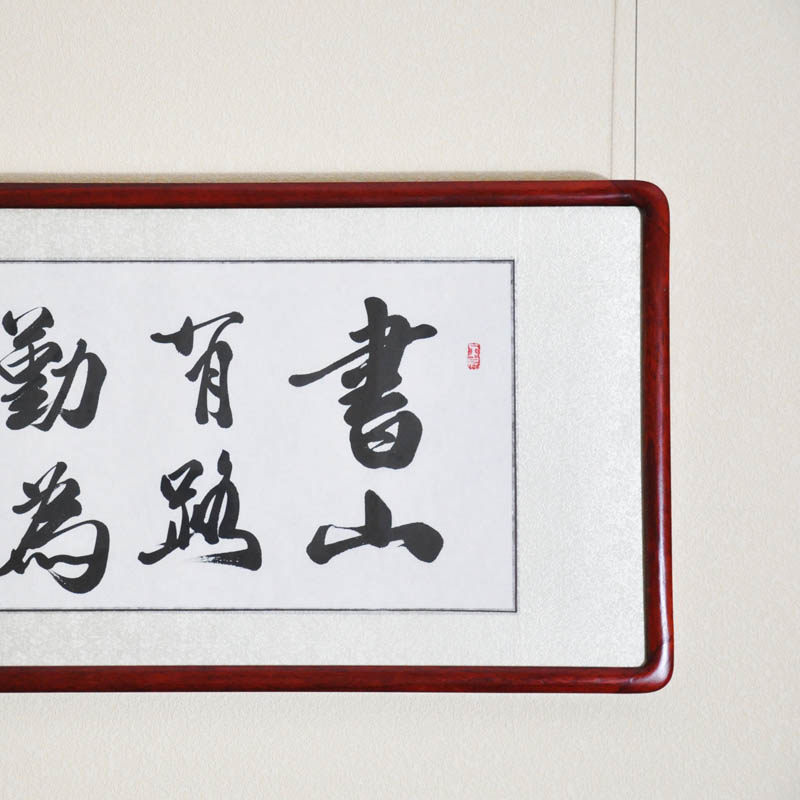 書山
有路
勤為